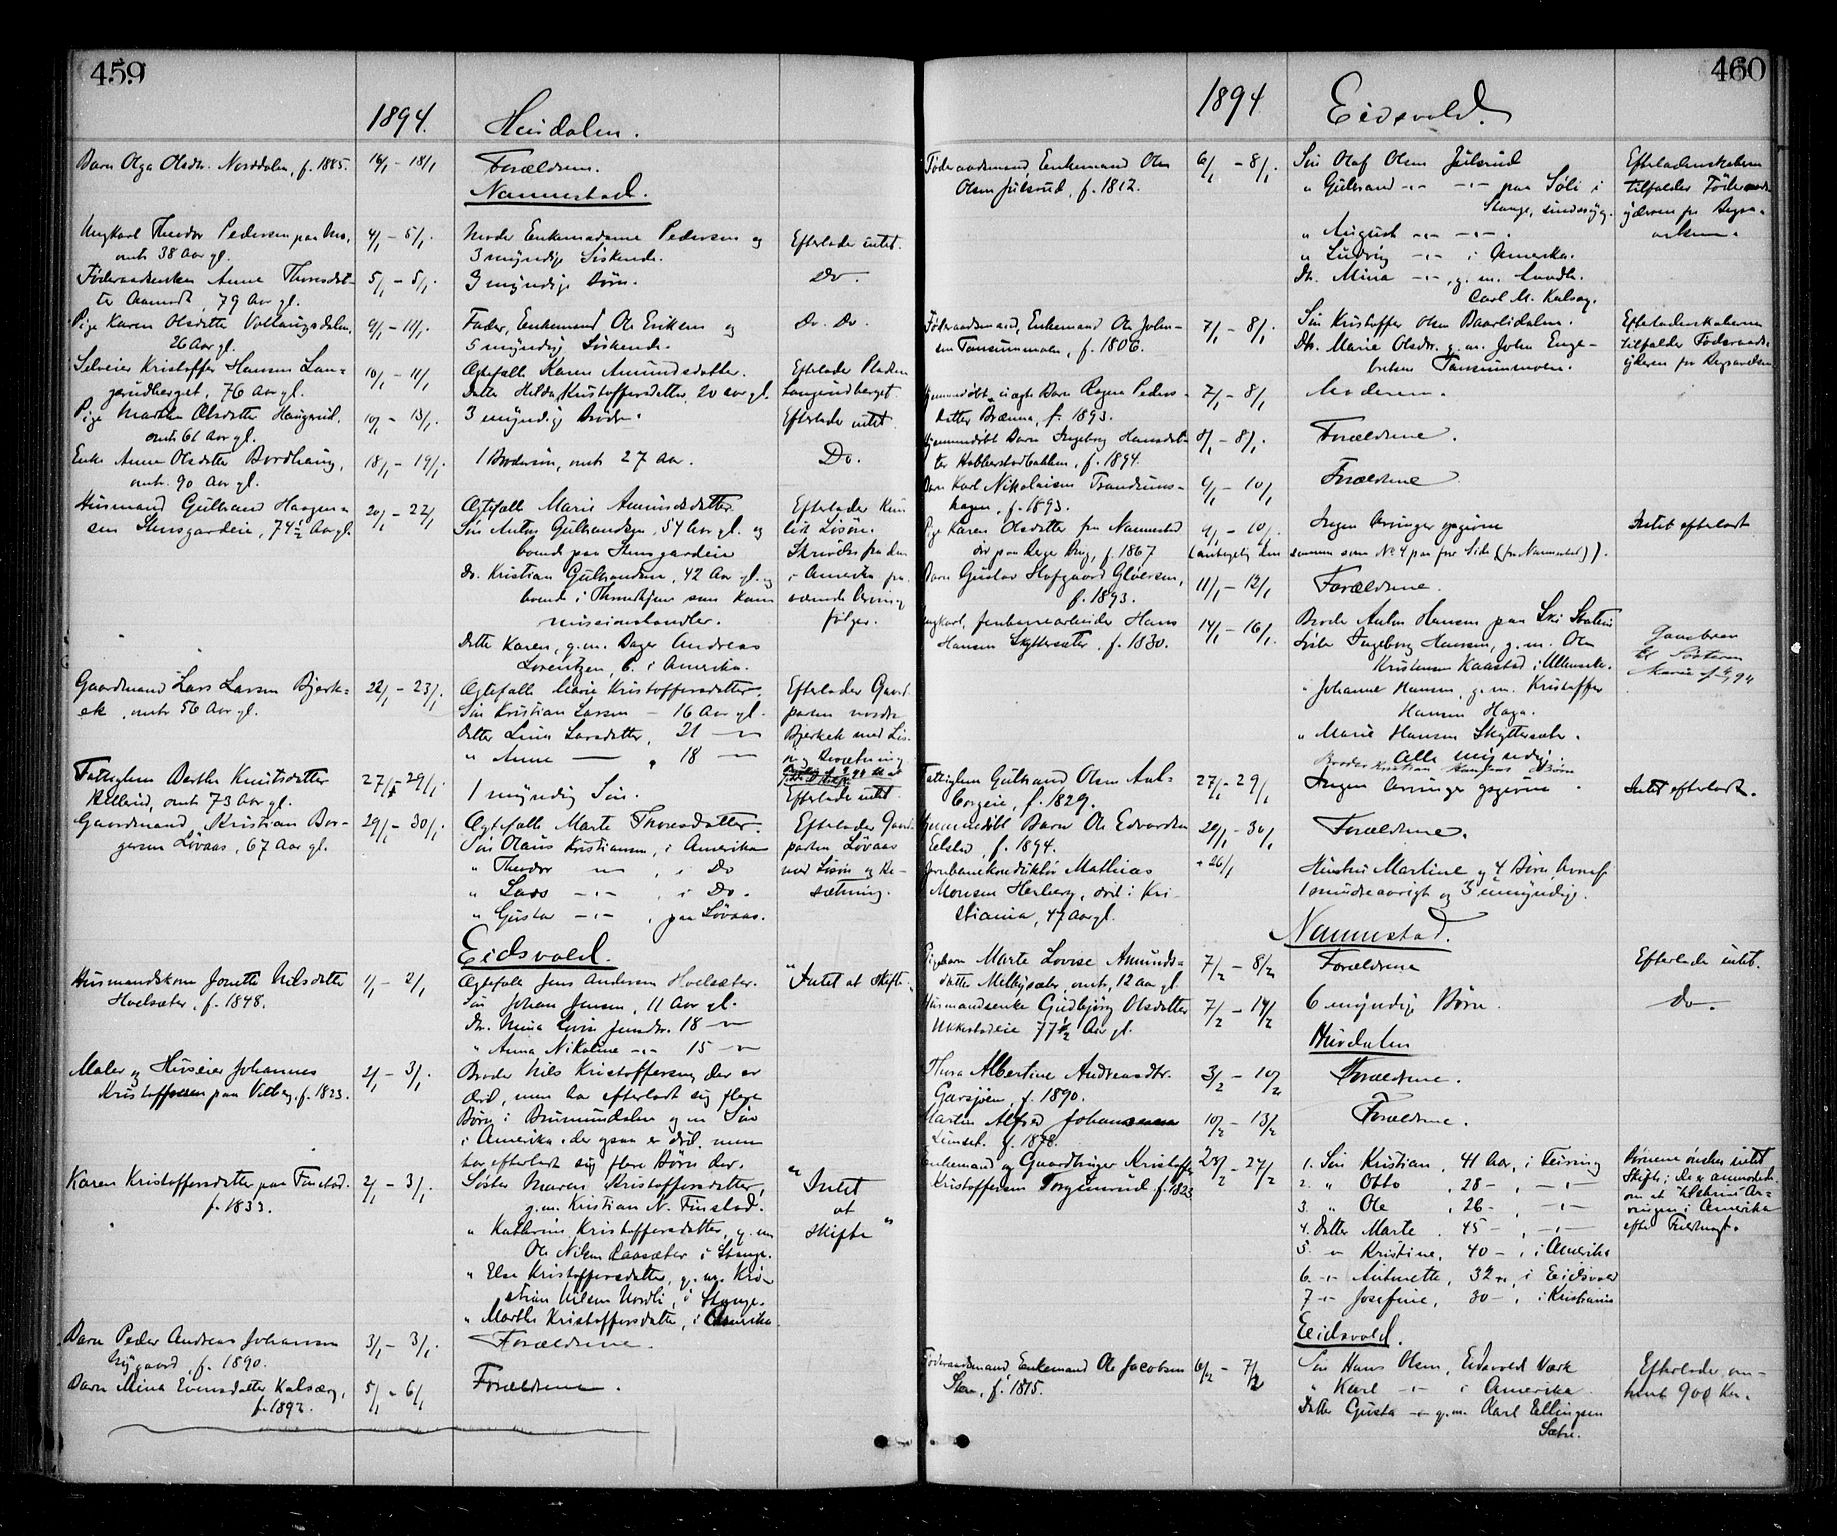 459
1894.
Hurdalen.
Barn Olga Olsdtr. Norddalen, f. 1885.
16/1 – 18/1
Forældrene.
Nannestad.
Ungkarl Theodor Pedersen paa
omtr 38 Aar gl.
4/1 – 5/1.
Moder Enkemadame Pedersen og
3 myndige Søskende.
Efterlader intet.
Føderaadsenken Anne Thoresdat-
ter Aamodt, 79 Aar gl.
5/1 – 5/1.
9 myndige Børn.
Do
Pige Karen Olsdatter Vollaugsdalen,
26 Aar gl.
9/1 – 11/1.
Fader, Enkemand Ole Eriksen og
5 myndige Søskende.
Do. Do.
Selveier Kristoffer Hansen Lan-
gerudberget, 76 Aar gl.
10/1 – 11/1
Ægtefælle Karen Amundsdatter.
Datter Hilda Kristoffersdatter, 20 aar gl.
Efterlader Pladsen
Langerudberget.
Pige Marthe Olsdatter Haugerud,
omtr 61 Aar gl.
10/1 – 13/1.
3 myndige Brødre
Efterlader intet.
Enke Anne Olsdatter Bordhaug,
omtr. 90 Aar gl.
18/1 – 19/1.
1 Brodersøn, omtr 27 Aar.
Do.
Husmand Gulbrand Haagen-
sen Stensgardeie, 74½ Aar gl.
20/1 – 22/1
Ægtefælle Marie Amundsdatter.
Søn Anton Gulbrandsen, 54 Aar gl. og
boende paa Stensgardeie
Do. Kristian Gulbrandsen, 42 Aar gl. og
boende i Throndhjem som Kom
missionshandler.
Datter Karen, g.m. Bager Andreas
Lorentzen, b. i Amerika.
Efterlader Kun
lid Løsøre.
Skriftes fra den
i Amerika fra-
værende Arving
følger.
Gaardmand Lars Larsen Bjerk-
ek, omtr 56 Aar gl.
22/1 – 23/1.
Ægtefælle Marie Kristoffersdatter.
Søn Kristian Larsen – 16 Aar gl.
Datter Lina Larsdatter, 21 –
" Anne — " 18 —
Efterlader Gaard-
parten nordre
Bjerkek med Løs-
øre og Besætning
Fattiglem Berthe Knutsdatter
Hellerud, omtr 73 Aar gl.
27/1 – 29/1.
1 myndig Søn.
Efterlader intet.
Gaardmand Kristian Bor-
gersen Løvaas, 67 Aar gl.
29/1 – 30/1.
Ægtefælle Marte Thoresdatter.
Søn Olaus Kristiansen, i Amerika
" Theodor — , i Do
" Lars — , i Do.
" Gustav — , paa Løvaas.
Efterlader Gaard-
parten Løvaas
med Løsøre og Be-
sætning.
Eidsvold.
Husmandskone Jonette Nilsdatter
Hoelsæter, f. 1848.
1/1 – 2/1
Ægtefælle Jens Andersen Hoelsæter.
Søn Johan Jensen, 11 Aar gl.
Dtr. Mina Jensdtr. 18 —
" Anna Nikoline — 15 —
"Intet at skifte.
Maler og Huseier Johannes
Kristoffersen paa Vilberg, f. 1823.
2/1 – 3/1.
Broder Nils Kristoffersen, der er
død, men har efterladt sig flere
Børn i Brumunddalen og en Søn
i Amerika, der ogsaa er død, men
har efterladt sig flere Børn der.
Karen Kristoffersdatter paa Finstad.
f. 1833.
2/1 – 3/1.
Søster Maren Kristoffersdatter,
g.m. Kristian N. Finstad.
" Kathrine Kristoffersdatter, g.m
Ole Nilsen Raasæter i Stange.
" Else Kristoffersdatter, g.m. Kri-
stian Nilsen Nordli, i Stange.
" Marthe Kristoffersdatter, i Amerika.
"Intet
at
skifte"
Barn Peder Andreas Johansen
Nygaard, f. 1890.
3/1 – 3/1.
Forældrene.
Barn Mina Evensdatter Kalsæg,
f. 1892.
5/1 – 6/1
Forældrene.
460
1894
Eidsvold.
Føderaadsmand, Enkemand Ole
Olsen Julsrud, f. 1812.
6/1 – 8/1.
Søn Olaf Olsen Julsrud
" Gulbrand — — paa Søli i
Stange, sindssyg.
" August — —.
" Ludvig — i Amerika.
Dtr. Mina — , g.m. Landh.
Carl M. Kalsæg.
Efterladenskaberne
tilfalder Føderaads-
yderen for Begra-
velsen.
Føderaadsmand, Enkemand Ole John-
sen Tansummoen, f. 1806.
7/1 – 8/1.
Søn Kristoffer Olsen Baarlidalen.
Dtr. Marie Olsdtr. g.m. John Enge-
bretsen Tansummoen.
Efterladenskaberne
tilfalder Føderaads-
yderen for Begravelsen
Hjemmedøbt, uægte Barn Ragna Peders-
datter Brænna, f. 1893.
7/1 – 8/1
Moderen.
Hjemmedøbt Barn Ingeborg Hansdat-
ter Habberstadbakken, f. 1894.
8/1 – 8/1.
Forældrene.
Barn Karl Nikolaisen Trandrums-
hagen, f. 1893.
9/1 – 10/1
Forældrene
Pige Karen Olsdatter fra Nannestad
død paa Berger Brug, f. 1867
9/1 – 10/1.
Ingen Arvinger opgivne
Intet efterladt
(antagelig den samme som No 4 paa forr. Side (fra Nannestad)).
Barn Gustav Hofgaard Gløersen,
f. 1893.
11/1 – 12/1
Forældrene.
Ungkarl, Jernbanearbeider Hans
Hansen Skyttersæter, f. 1830.
14/1 – 16/1.
Broder Anton Hansen paa Ski Station
Søster Ingeborg Hansen, g.m. Ole
Kristensen Kaastad i Ullensak.
" Johanne Hansen, g.m. Kristoffer
Hansen Haga.
" Marie Hansen Skyttersæter.
Alle myndige
Broder Kristian Hansens Børn
Gaardbrev
til Søsteren
Marie
Fattiglem Gulbrand Olsen Aul-
f. 1829.
27/1 – 29/1
Ingen Arvinger opgivne
Intet efterladt.
Hjemmedøbt Barn Ole Edvardsen
Eelstad, f. 1894.
29/1 – 30/1
Forældrene.
Jernbanekonduktør Mathias
Monsen Herberg, død i Kri-
stiania, 47 Aar gl.
+ 26/1
Hustru Martine og 4 Børn, hvoraf
1 mindreaarigt og 3 umyndige.
Nannestad.
Pigebarn Marte Lovise Amunds-
datter Melbysæter, omtr. 12 aar gl.
7/2 – 8/2
Forældrene
Efterlader intet.
Husmandsenke Gudbjørg Olsdatter
Ukkestadeie 77½ Aar gl.
7/2 – 14/2
6 myndige Børn.
Do
Hurdalen
Thora Albertine Andreasdtr.
Garsjøen, f. 1890.
3/2 – 10/2
Forældrene.
Martin Alfred Johannessen
f. 1878.
10/2 – 13/2
Forældrene.
Enkemand og Gaardbruger Kristoffer
Kristoffersen Torgunrud f. 1823
23/2 – 27/2
1. Søn Kristian, 41 Aar, i Feiring
2. " Otto , 28 – , —
3. " Ole , 26 – , —
4. Datter Marte . 45 – , —
5. " Kristine, 40 – , i Amerika
6. " Antonette, 32 , i Eidsvold
7 " Josefine, 30 – , i Kristiania
Børnene ønsker intet
Skifte; de er anmodede
om at Arv-
ingen i Amerika
efter
Eidsvold.
Føderaadsmand, Enkemand Ole Jacobsen
Steen, f. 1815.
6/2 – 7/2
Søn Hans Olsen, Eidsvold Værk
" Karl — i Amerika
Datter Gusta — g.m. Karl Ellingsen
Sætre.
Efterlader om-
trent 900 Kr.